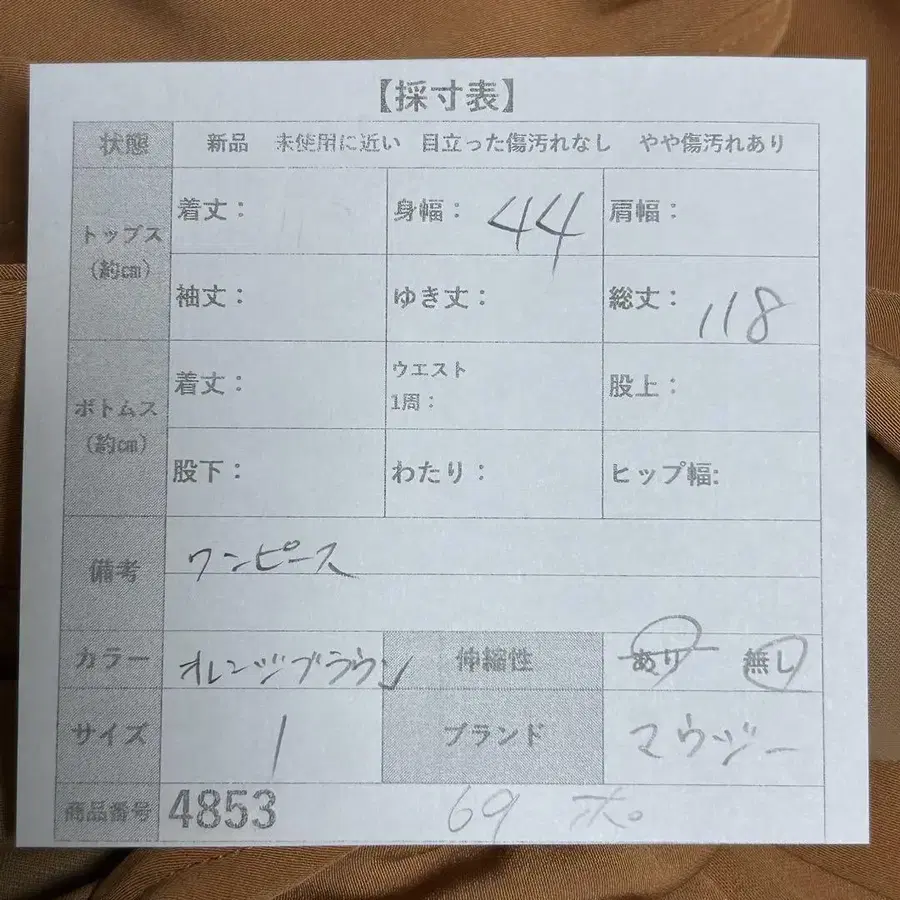 【採寸表】
状態 新品 未使用に近い 目立った傷汚れなし やや傷汚れあり
トップス（約㎝） 着丈： 身幅：44 肩幅：
袖丈： ゆき丈： 総丈：118
ボトムス（約㎝） 着丈： ウエスト1周： 股上：
股下： わたり： ヒップ幅:
備考 ワンピース
カラー オレンジブラウン 伸縮性 あり 無し
サイズ 1 ブランド マウジー
商品番号 4853 69 ポ